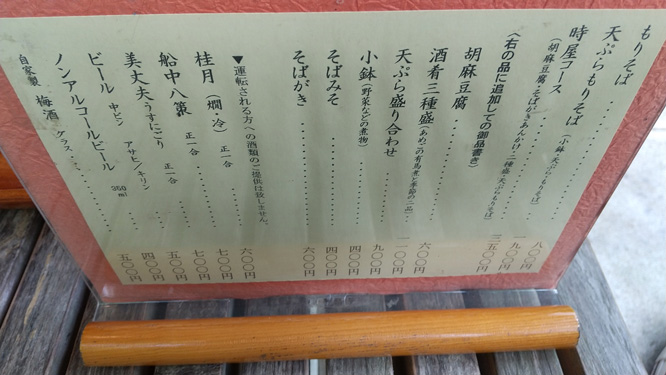 もりそば 八〇〇円
天ぷらもりそば 一九〇〇円
時屋コース (小鉢・天ぷら・もりそば) 三五〇〇円
(胡麻豆腐・そばがきあんかけ・二種盛・天ぷら・もりそば)
〈右の品に追加しての御品書き〉
胡麻豆腐 六〇〇円
酒肴三種盛 (あめごの有馬煮と季節の二品) 一一〇〇円
天ぷら盛り合わせ 九〇〇円
小鉢 (野菜などの煮物) 四〇〇円
そばみそ 四〇〇円
そばがき 六〇〇円
▼運転される方への酒類のご提供は致しません。
桂月 (燗・冷) 正一合 六〇〇円
船中八策 正一合 七〇〇円
美丈夫 うすにごり 正一合 七〇〇円
ビール 中ビン アサヒ/キリン 五〇〇円
ノンアルコールビール 350ml 四〇〇円
自家製 梅酒 グラス 五〇〇円